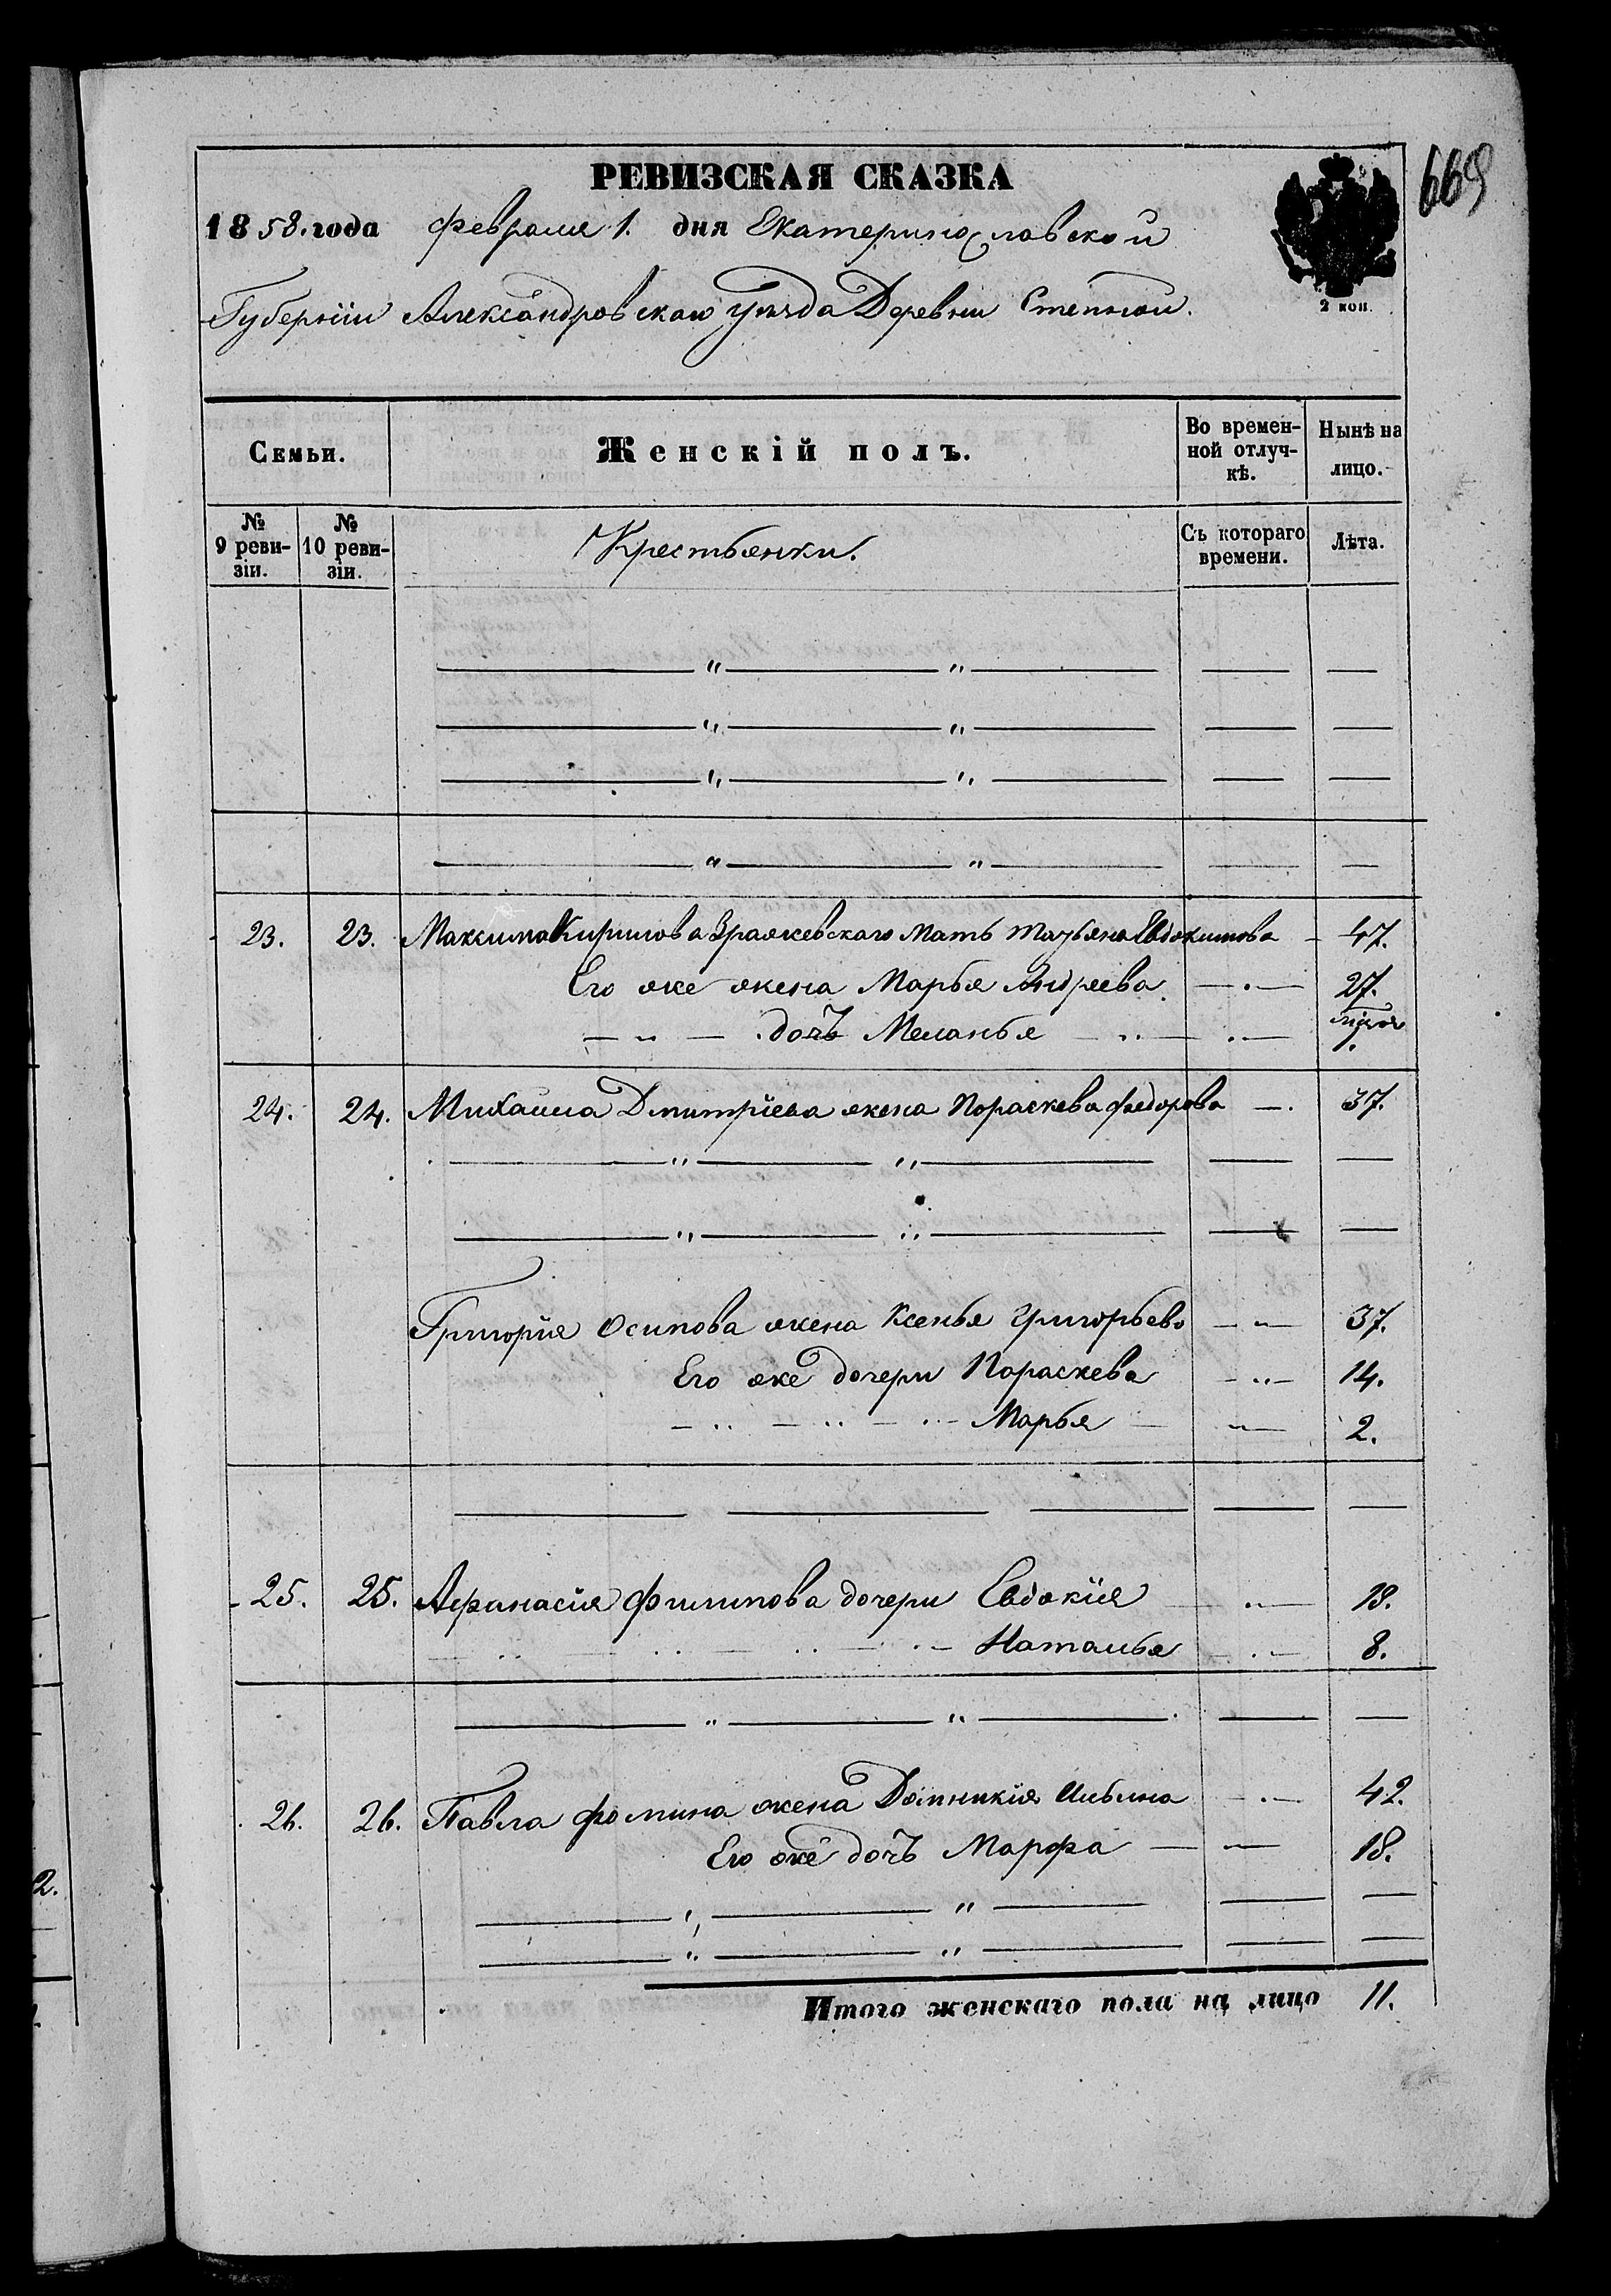 669
РЕВИЗСКАЯ СКАЗКА
1858. года февраля 1. дня Екатеринославской
2 коп.
Губерніи Александровскаго Уѣзда Деревни Степной.
Семьи.
Женскій полъ.
Во времен-
ной отлуч-
кѣ.
Нынѣ на
лицо.
№
9 реви-
зіи.
№
10 реви-
зіи.
Крестьянки.
Съ котораго
времени.
Лѣта.
23. 23. Максима Кирилова Мать Татьяна Евдокимова 47.
Его же жена Марья Андреева 27.
дочь Меланья
24. 24. Михаила Дмитріева жена Пораскева Федорова 37.
Григорія Осипова жена Ксенья Григорьева 37.
Его же дочери Пораскева 14.
Марья 2.
25. 25. Афанасія Филипова дочери Евдокія 18.
Наталья 8.
26. 26. Павла Фомина жена Домникія Ильина 42.
Его же дочь Марфа 18.
Итого женскаго пола на лицо 11.
2.